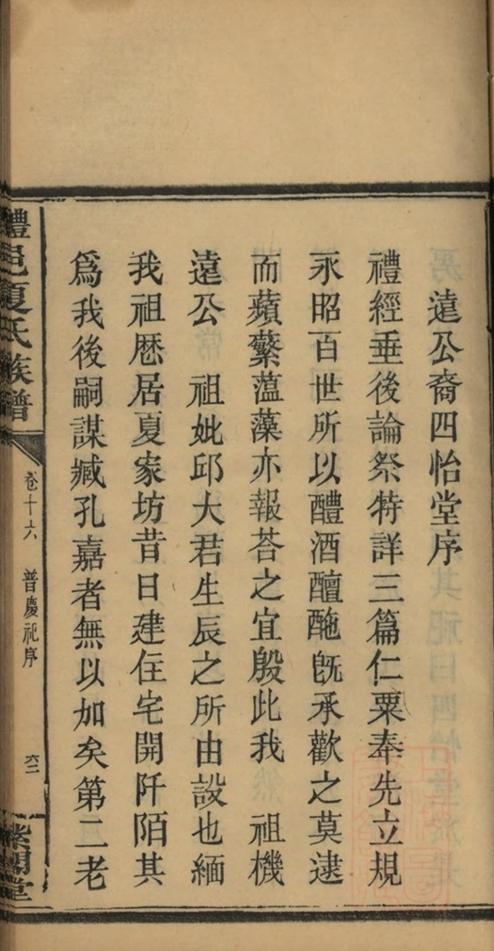 遠公裔四怡堂序
禮經垂後論祭特詳三篇仁粟奉先立規
永昭百世所以醴酒䤘酏旣承歡之莫逮
而蘋蘩薀藻亦報荅之宜殷此我 祖機
遠公 祖妣邱大君生辰之所由設也緬
我祖厯居夏家坊昔日建住宅開阡陌其
爲我後嗣謀臧孔嘉者無以加矣第二老
醴邑夏氏族譜
卷十六 普慶祀序
紫閣堂